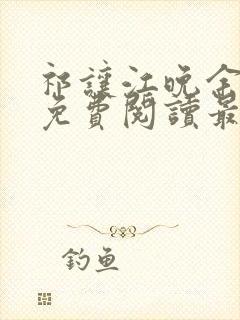 祁讓江晚余
免費閱讀最
釣魚